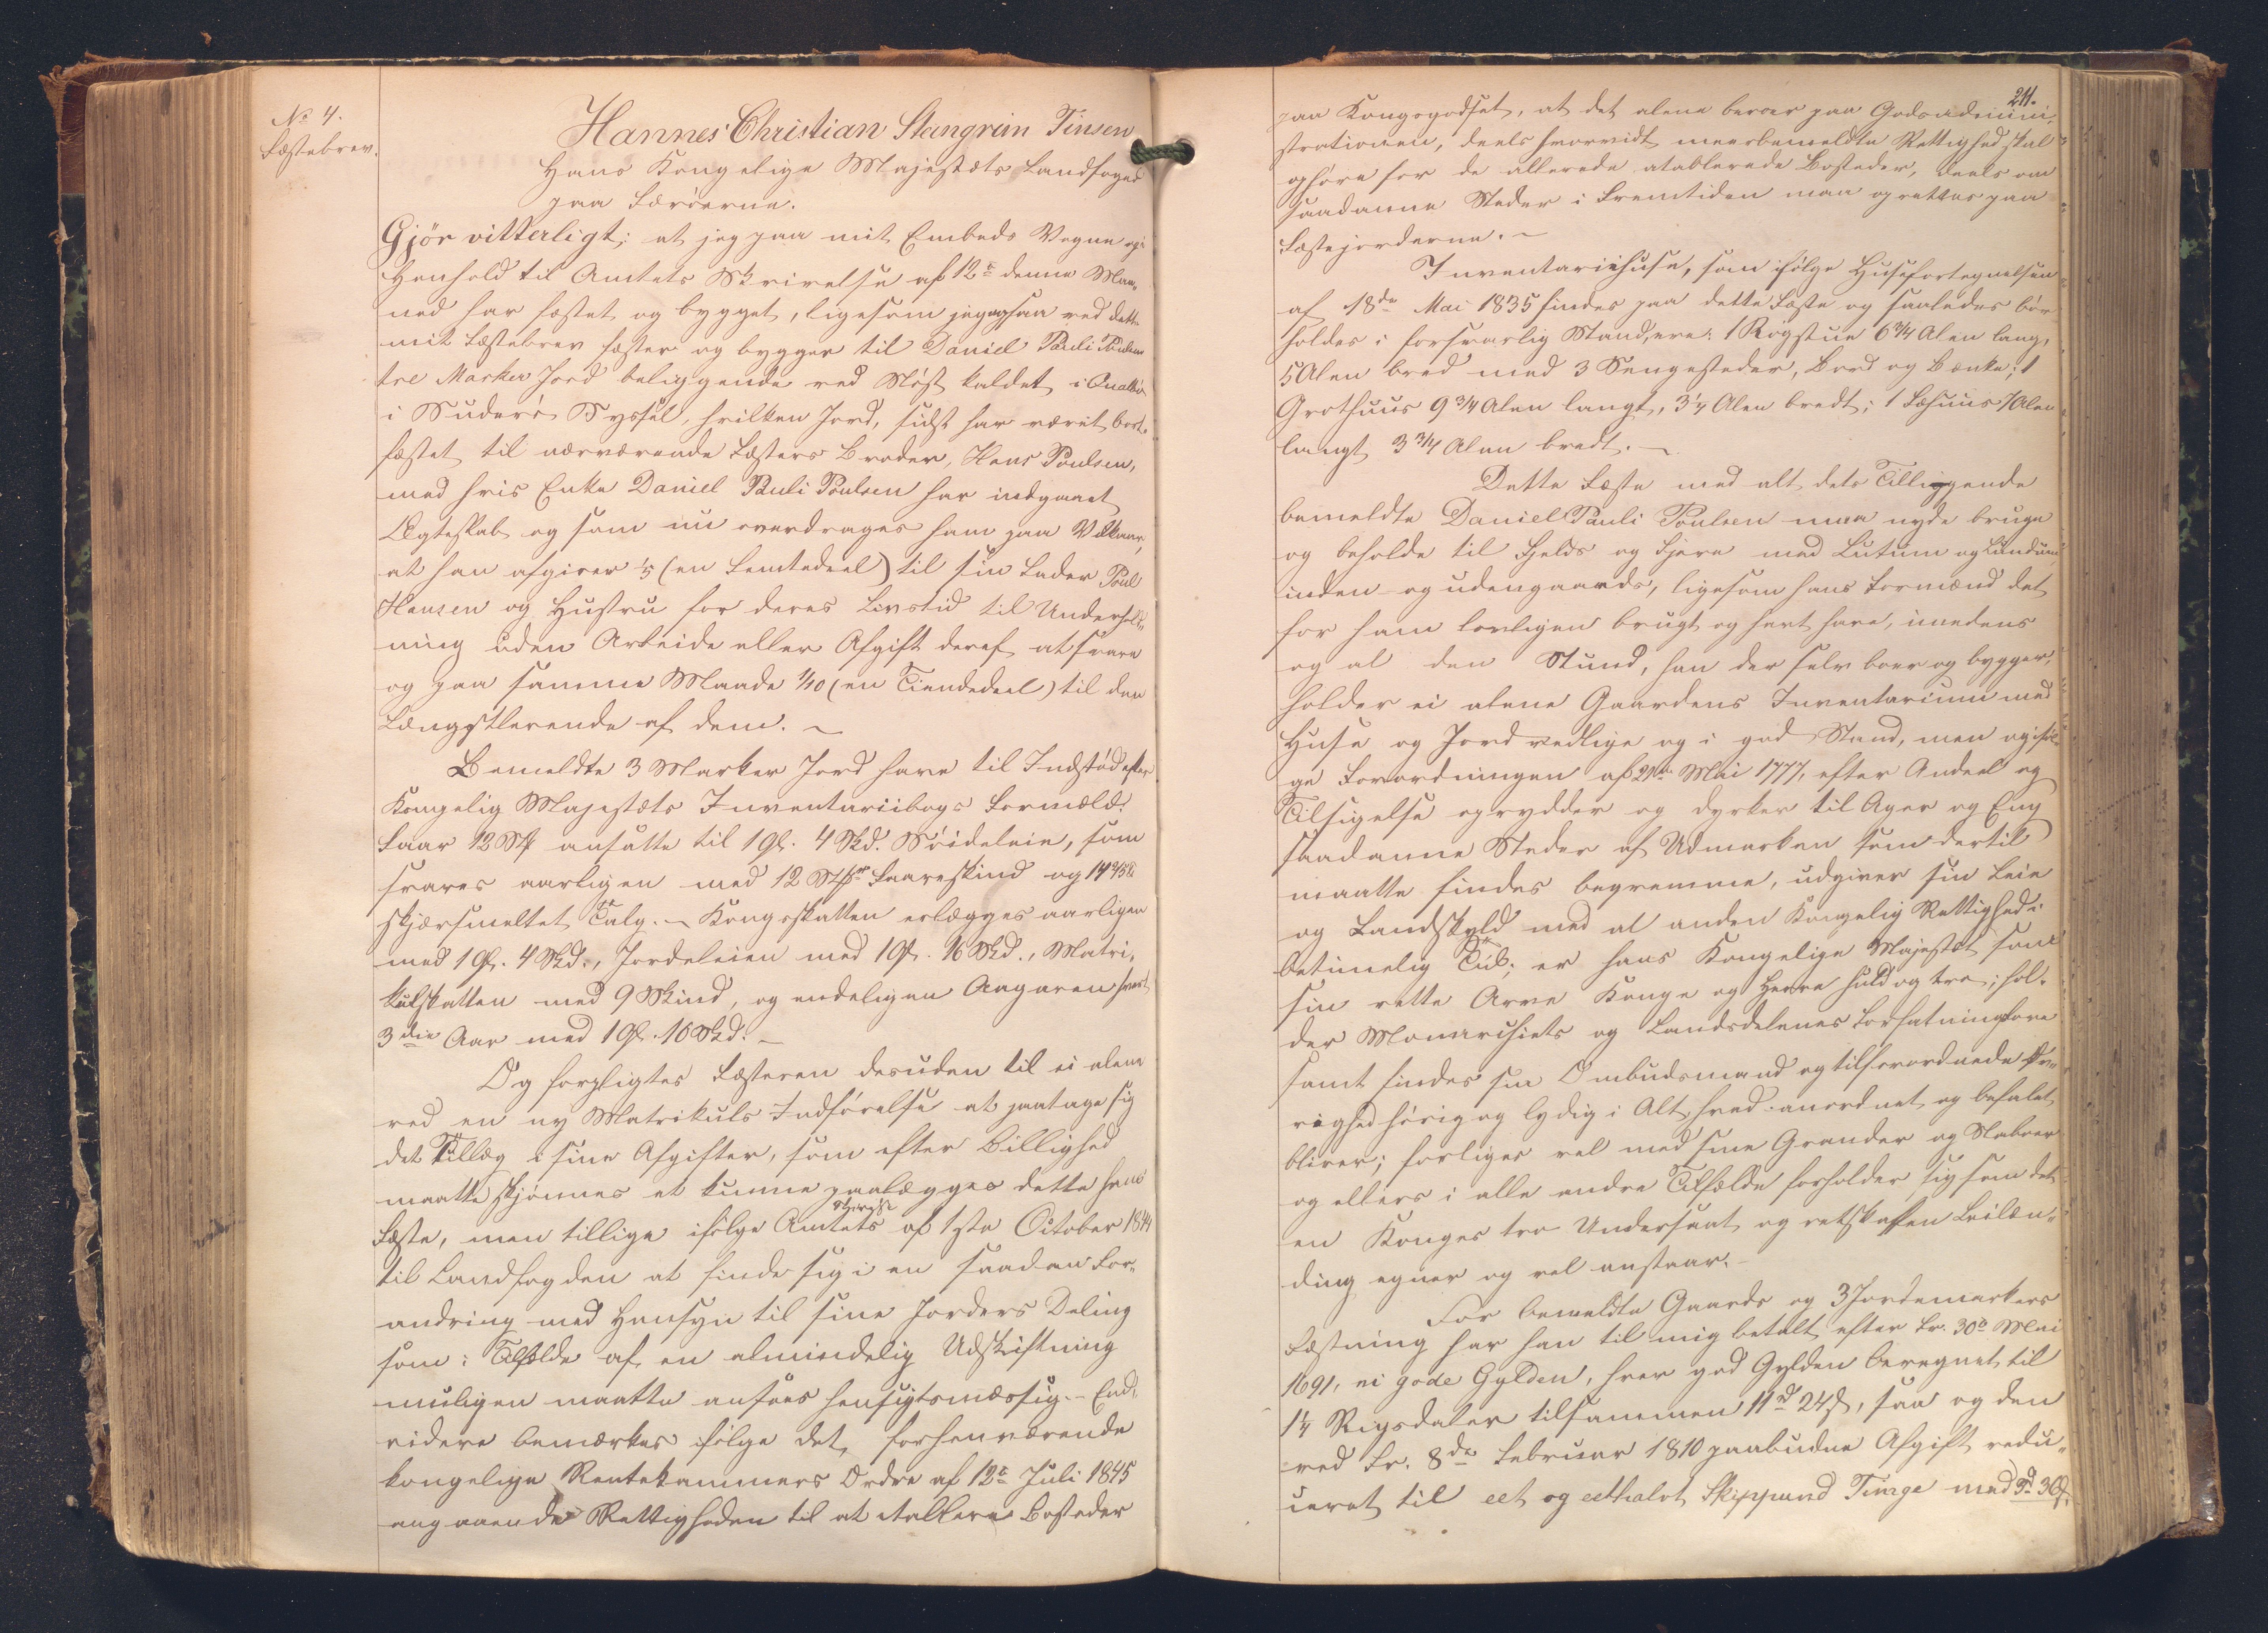 No 4.
Fæstebrev.
Hannes Christian Stangrim Finsen
Hans Kongelige Majestæts Landfoged
paa Færöerne.
Gjör vitterligt: at jeg paa mit Embeds Vegne og i
Henhold til Amtets Skrivelse af 12te denne Maa-
ned har fæstet og bygget, ligesom jeg ogsaa ved dette
mit Fæstebrev fæster og bygger til Daniel Pauli Poulsen
tre Marker Jord beliggende ved Nöst kaldet i Qvalbö
i Suderö Syssel, hvilken Jord, sidst har været bort-
fæstet til nærværende Fæsters Broder, Hans Poulsen,
med hvis Enke Daniel Pauli Poulsen har indgaaet
Ægteskab og som nu overdrages ham paa Vilkaar,
at han afgiver 1/5 (en Femtedeel) til sin Fader Poul
Hansen og Hustru for deres Livstid til Underhold-
ning uden Arbeide eller Afgift deraf at svare
og paa samme Maade 1/10 (en Tiendedeel) til den
Længstlevende af dem. ~
Bemeldte 3 Marker Jord have til Indstöd efter
Kongelig Majestæts Inventariibogs Formæld:
Faar 12 Stk ansatte til 1 Gl. 4 Skd. Söideleie, som
svares aarligen med 12 Stkr Faareskind og
skjærsmeltet Talg. ~ Kongsskatten erlægges aarligen
med 1 Gl. 4 Skd., Jordeleien med 1 Gl. 16 Skd., Matri-
kulskatten med 9 Skind, og endeligen Aagaven hvert
3die Aar med 1 Gl. 16 Skd. ~
Og forpligtes Fæsteren desuden til ei alene
ved en ny Matrikuls Indförelse at paatage sig
det Tillæg i sine Afgifter, som efter Billighed
maatte skjönnes at kunne paalægges dette hans
Fæste, men tillige ifölge Amtets Skrivelse af 1ste October 1844
til Landfogden at finde sig i en saadan For-
andring med Hensyn til sine Jorders Deling
som i Tilfælde af en almindelig Udskiftning
muligen maatte ansees hensigtsmæssig. - End-
videre bemærkes ifölge det forhenværende
kongelige Rentekammers Ordre af 12te Juli 1845
angaaende Rettigheden til at etablere Bosteder
211.
paa Kongsgodset, at det alene beroer paa Godsadmini-
strationen, deels hvorvidt meerbemeldte Rettighed skal
ophöre for de allerede etablerede Bosteder, deels om
saadanne Steder i Fremtiden maa oprettes paa
Fæstejorderne. ~
Inventariihuse, som ifölge Husefortegnelsen
af 18de Mai 1835 findes paa dette Fæste og saaledes bör
holdes i forsvarlig Stand, ere: 1 Rögstue 6 3/4 Alen lang,
5 Alen bred med 3 Sengesteder, Bord og Bænke; 1
Grothuus 9 3/4 Alen langt, 3 1/4 Alen bredt; 1 Fæhuus 7 Alen
langt 3 3/4 Alen bredt. ~
Dette Fæste med alt dets Tilliggende
bemeldte Daniel Pauli Poulsen maa nyde bruge
og beholde til Fjelds og Fjære med Lutum og Lundum,
inden- og udengaards, ligesom hans Formænd det
for ham lovligen brugt og havt have, imedens
og al den Stund, han der selv boer og bygger,
holder ei alene Gaardens Inventarium med
Huse og Jord vedlige og i god Stand, men og iföl-
ge Forordningen af 21de Mai 1777, efter Andeel og
Tilsigelse oprydder og dyrker til Ager og Eng
saadanne Steder af Udmarken som dertil
maatte findes beqvemme, udgiver sin Leie
og Landskyld med al anden Kongelig Rettighed i
betimelig Tid; er hans Kongelige Majestæt som
sin rette Arve Konge og Herre huld og tro; hol-
der Monarchiets og Landsdelenes Forfatningslove
samt findes sin Ombudsmand og tilforordnede Öv-
righed hörig og lydig i Alt, hvad anordnet og befalet
bliver; forliges vel med sine Grander og Naboer
og ellers i alle andre Tilfælde forholder sig som det
en Konges tro Undersaat og retskaffen Leilæn-
ding egner og vel anstaar. -
For bemeldte Gaards og 3 Jordemarkers
Fæstning har han til mig betalt efter Fr. 30te Mai
1691, ni gode Gylden, hver god Gylden beregnet til
1 1/4 Rigsdaler tilsammen 11 rd 24 s, saa og den
ved Fr. 8de Februar 1810 paabudne Afgift redu-
ceret til eet og eethalvt Skippund Tunge med 3 rd 36 s